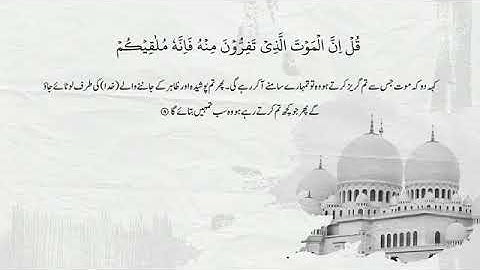 قُلْ اِنَّ الْمَوْتَ الَّذِيْ تَفِرُّوْنَ مِنْهُ فَاِنَّهٗ مُلٰقِيْكُمْ
کہہ دو کہ موت جس سے تم گریز کرتے ہو وہ تو تمہارے سامنے آ کر رہے گی۔ پھر تم پوشیدہ اور ظاہر کے جاننے والے (خدا) کی طرف لوٹائے جاؤ
گے پھر جو کچھ تم کرتے رہے ہو وہ سب تمہیں بتائے گا ﴿۸﴾